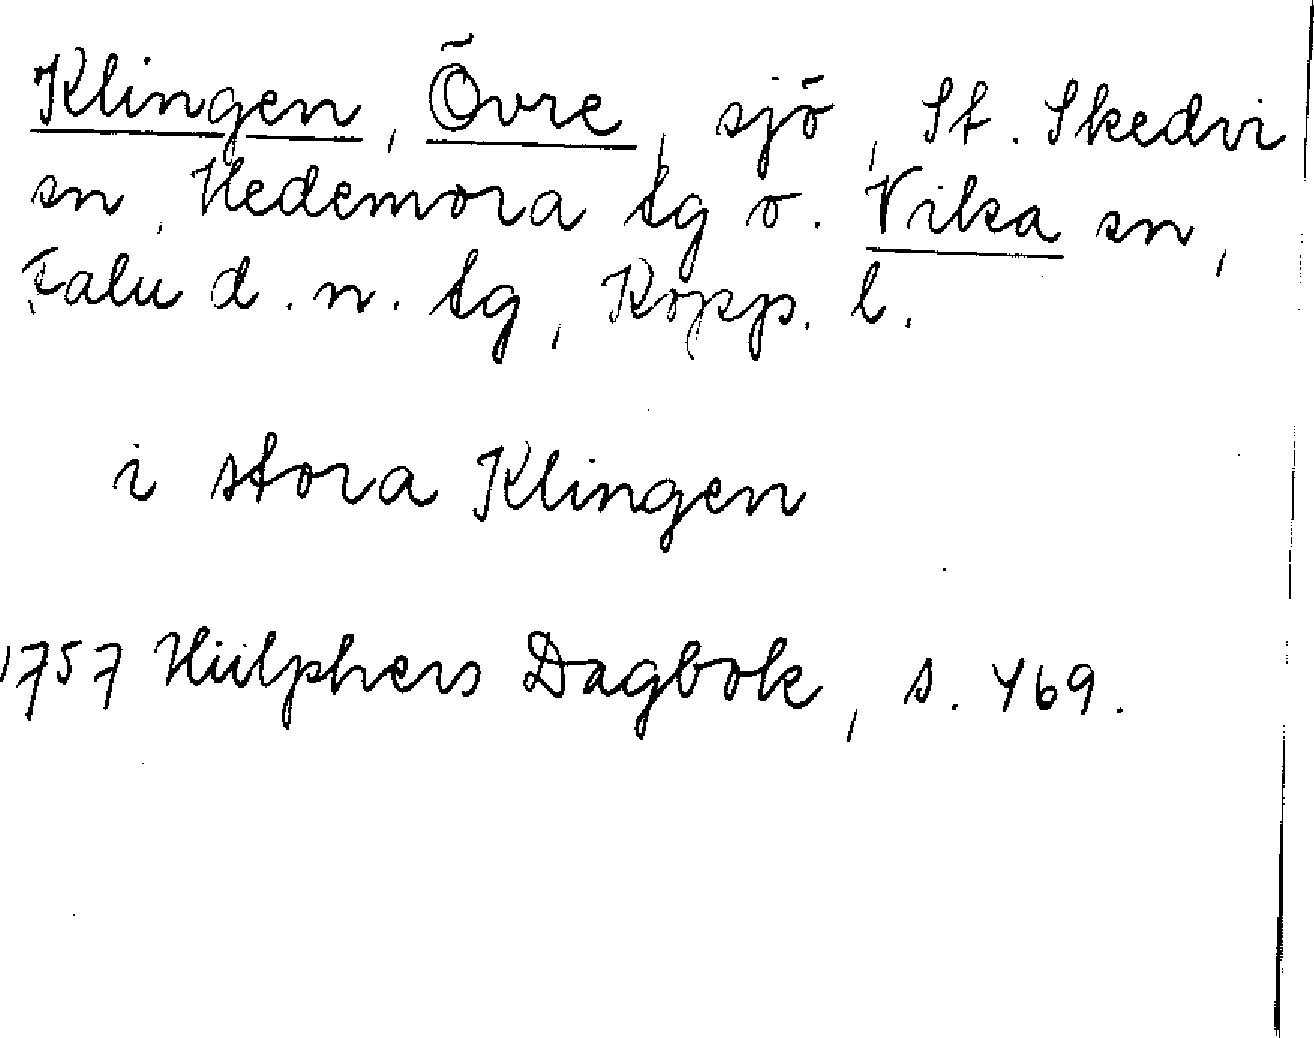 Klingen, Övre, sjö, St. Skedvi
sn, Hedemora tg o. Vika sn,
Falu d. n. tg, Kopp. l.
i stora Klingen
1757 Hülphers Dagbok, s. 469.